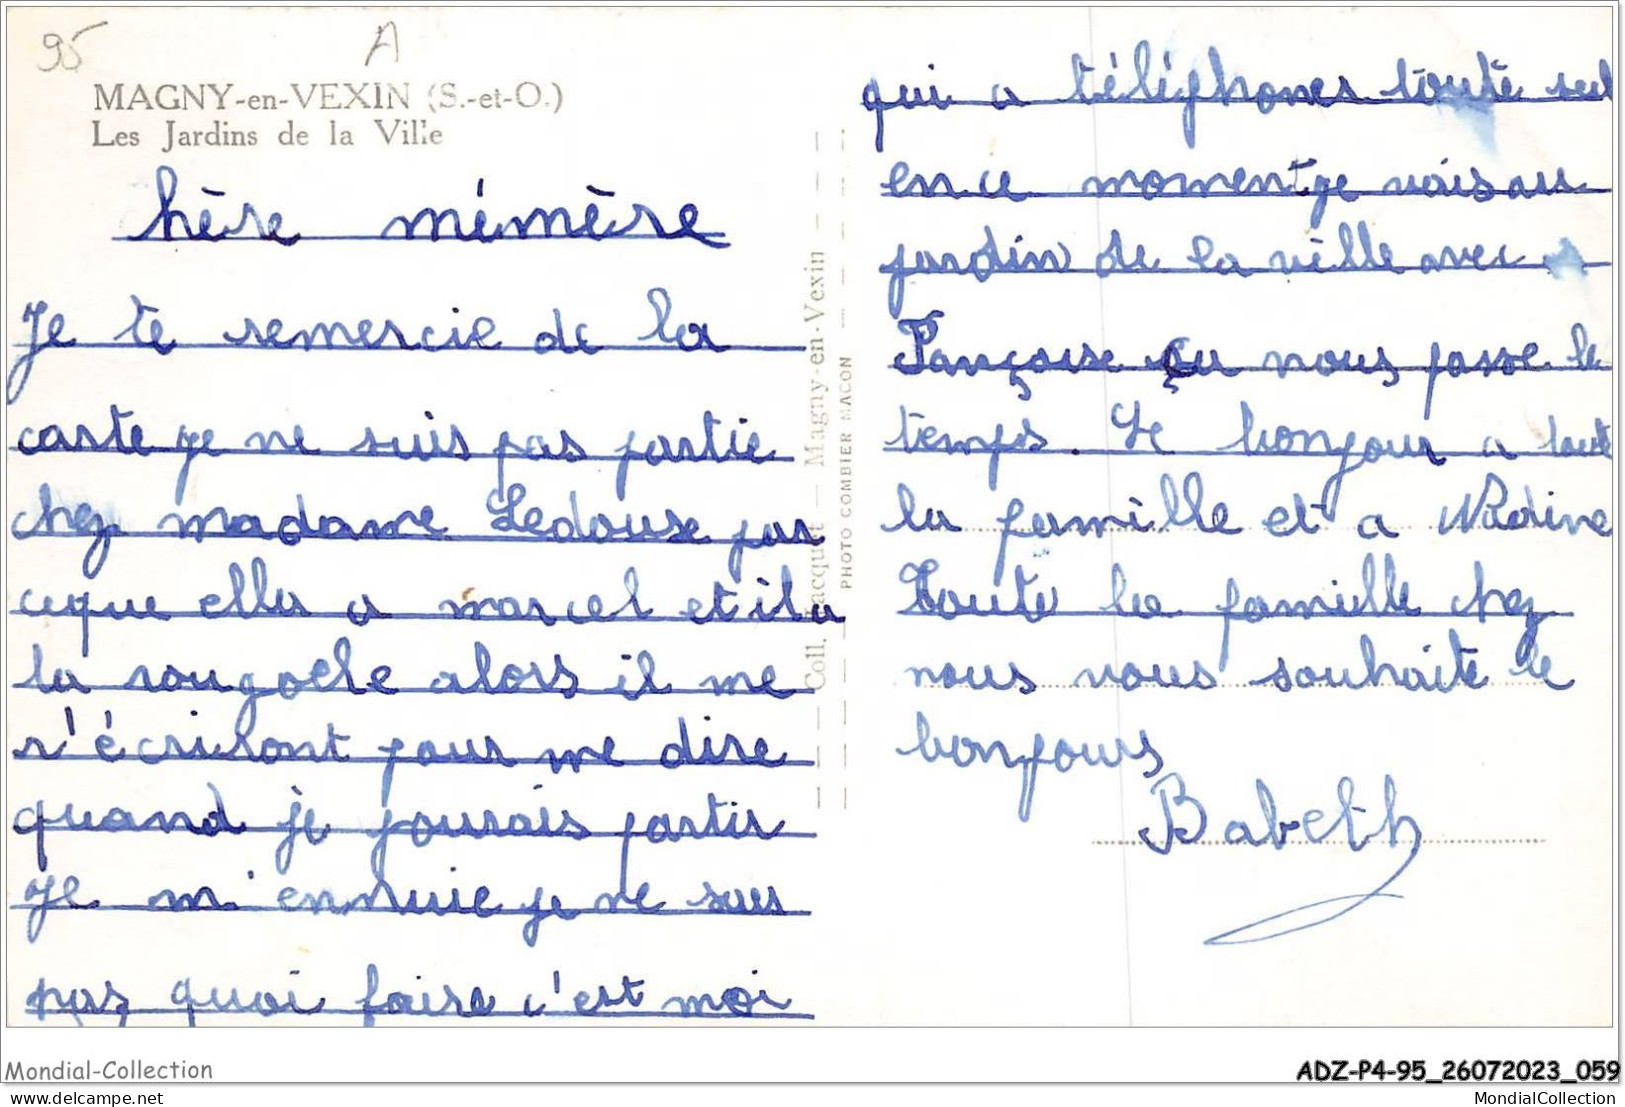 95 A
MAGNY-en-VEXIN (S.-et-O.)
Les Jardins de la Ville
hère mémère
Je te remercie de la
carte je ne suis pas partie
chez madame Ledouse par
ceque elle a marcel et il a
la rougole alors il me
r'écriront pour me dire
quand je pourais partir
Je m'ennuie je ne sais
pas quoi faire c'est moi
Coll. Jacquot — Magny-en-Vexin
PHOTO COMBIER MACON
qui a téléphoner toute seul
en ce moment je vais au
jardin de la ville avec
Fançoise Ça nous passe le
temps. Le bonjour a tout
la famille et a Nadine
Toute la famille chez
nous vous souhaite le
bonjours
Babeth
Mondial-Collection
ADZ-P4-95_26072023_059
delcampe.net
MondialCollection